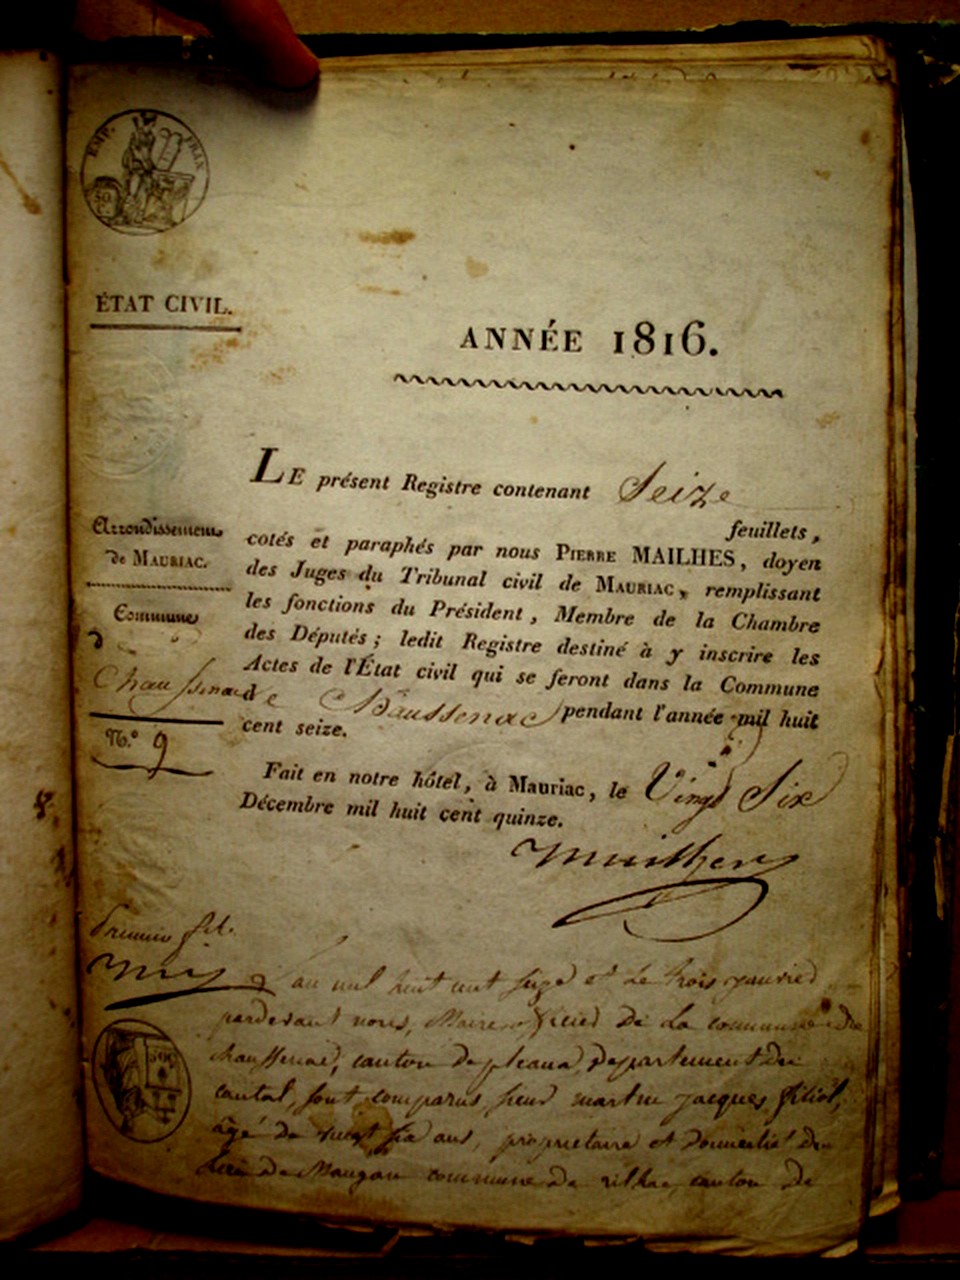 EMP. FRAN
50
ÉTAT CIVIL.
ANNÉE 1816.
LE présent Registre contenant Seize
feuillets,
cotés et paraphés par nous PIERRE MAILHES, doyen
des Juges du Tribunal civil de MAURIAC, remplissant
les fonctions du Président, Membre de la Chambre
des Députés; ledit Registre destiné à y inscrire les
Actes de l'État civil qui se feront dans la Commune
de Chaussenac pendant l'année mil huit
cent seize.
Arrondissement
de MAURIAC.
Commune
d
Chaussenac
N.º 9
Fait en notre hôtel, à Mauriac, le Vingt Six
Décembre mil huit cent quinze.
Mailhes
premier
an mil huit cent seize et le trois janvier
pardevant nous, Maire officier de la commune de
chaussenac, canton de pleaux, département du
cantal, sont comparus sieur martin jacques filiol,
âgé de vingt six ans, propriétaire et domicilié du
lieu de commune de rilhac, canton de